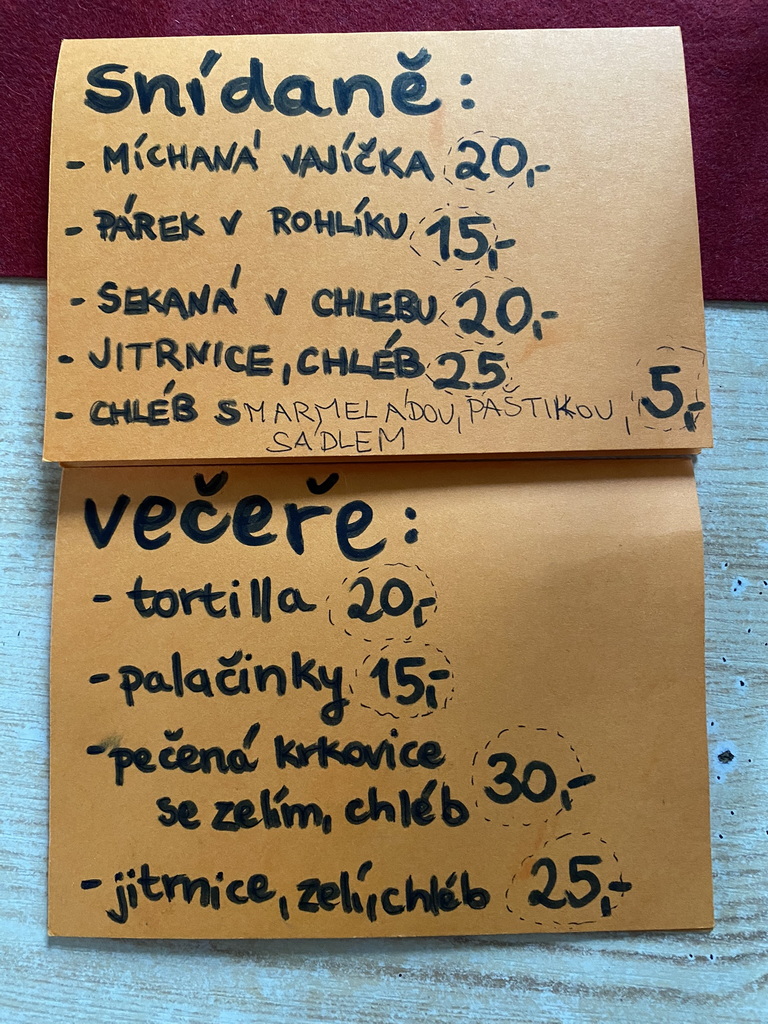 Snídaně:
- MÍCHANÁ VAJÍČKA 20,-
- PÁREK V ROHLÍKU 15,-
- SEKANÁ V CHLEBU 20,-
- JITRNICE, CHLÉB 25
- CHLÉB S MARMELÁDOU, PAŠTIKOU, 5,-
SÁDLEM
večeře:
- tortilla 20,-
- palačinky 15,-
- pečená krkovice 30,-
se zelím, chléb
- jitrnice, zelí, chléb 25,-